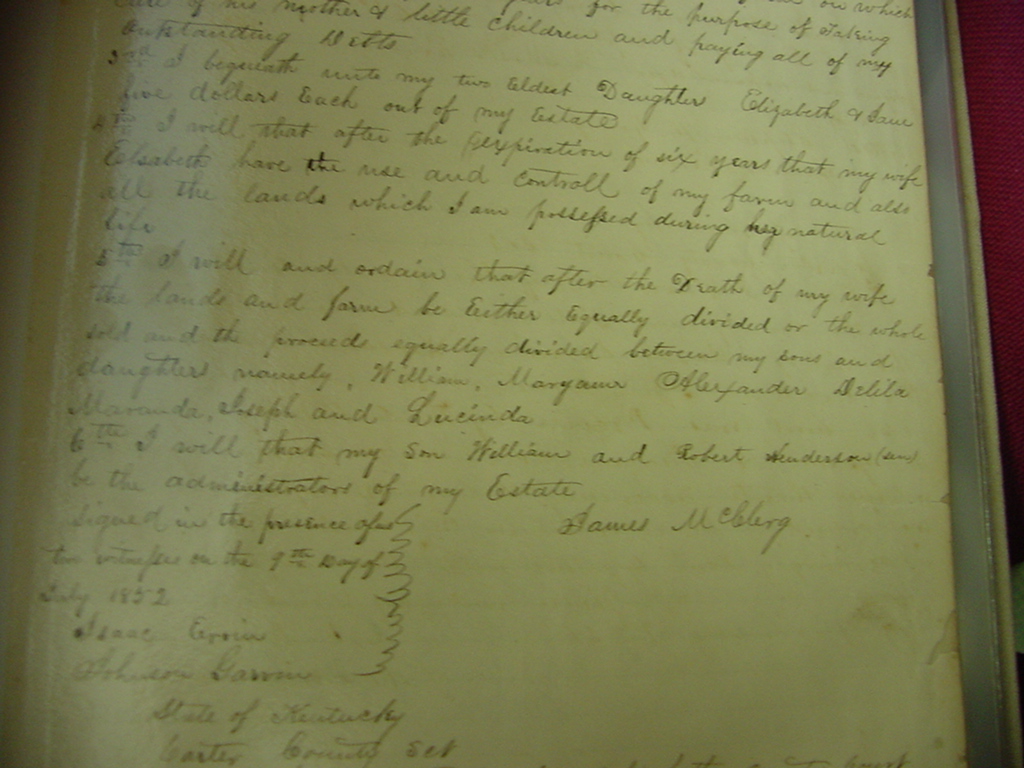 care of his mother & little children and paying all of my
outstanding debts
3rd I bequeath unto my two Eldest Daughters Elizabeth & Jane
five dollars Each out of my Estate
4th I will that after the Expiration of six years that my wife
Elisabeth have the use and controll of my farm and also
all the lands which I am possessed during her natural
life
5th I will and ordain that after the Death of my wife
the lands and farm be Either Equally divided or the whole
sold and the proceeds equally divided between my sons and
daughters namely, William, Maryann Alexander Delila
Maranda, Joseph and Lucinda
6th I will that my Son William and Robert Henderson
be the administrators of my Estate
Signed in the presence of us
two witnesses on the 9th day of
July 1852
James McGlerg.
Isaac Ervin
State of Kentucky
Carter County Sct